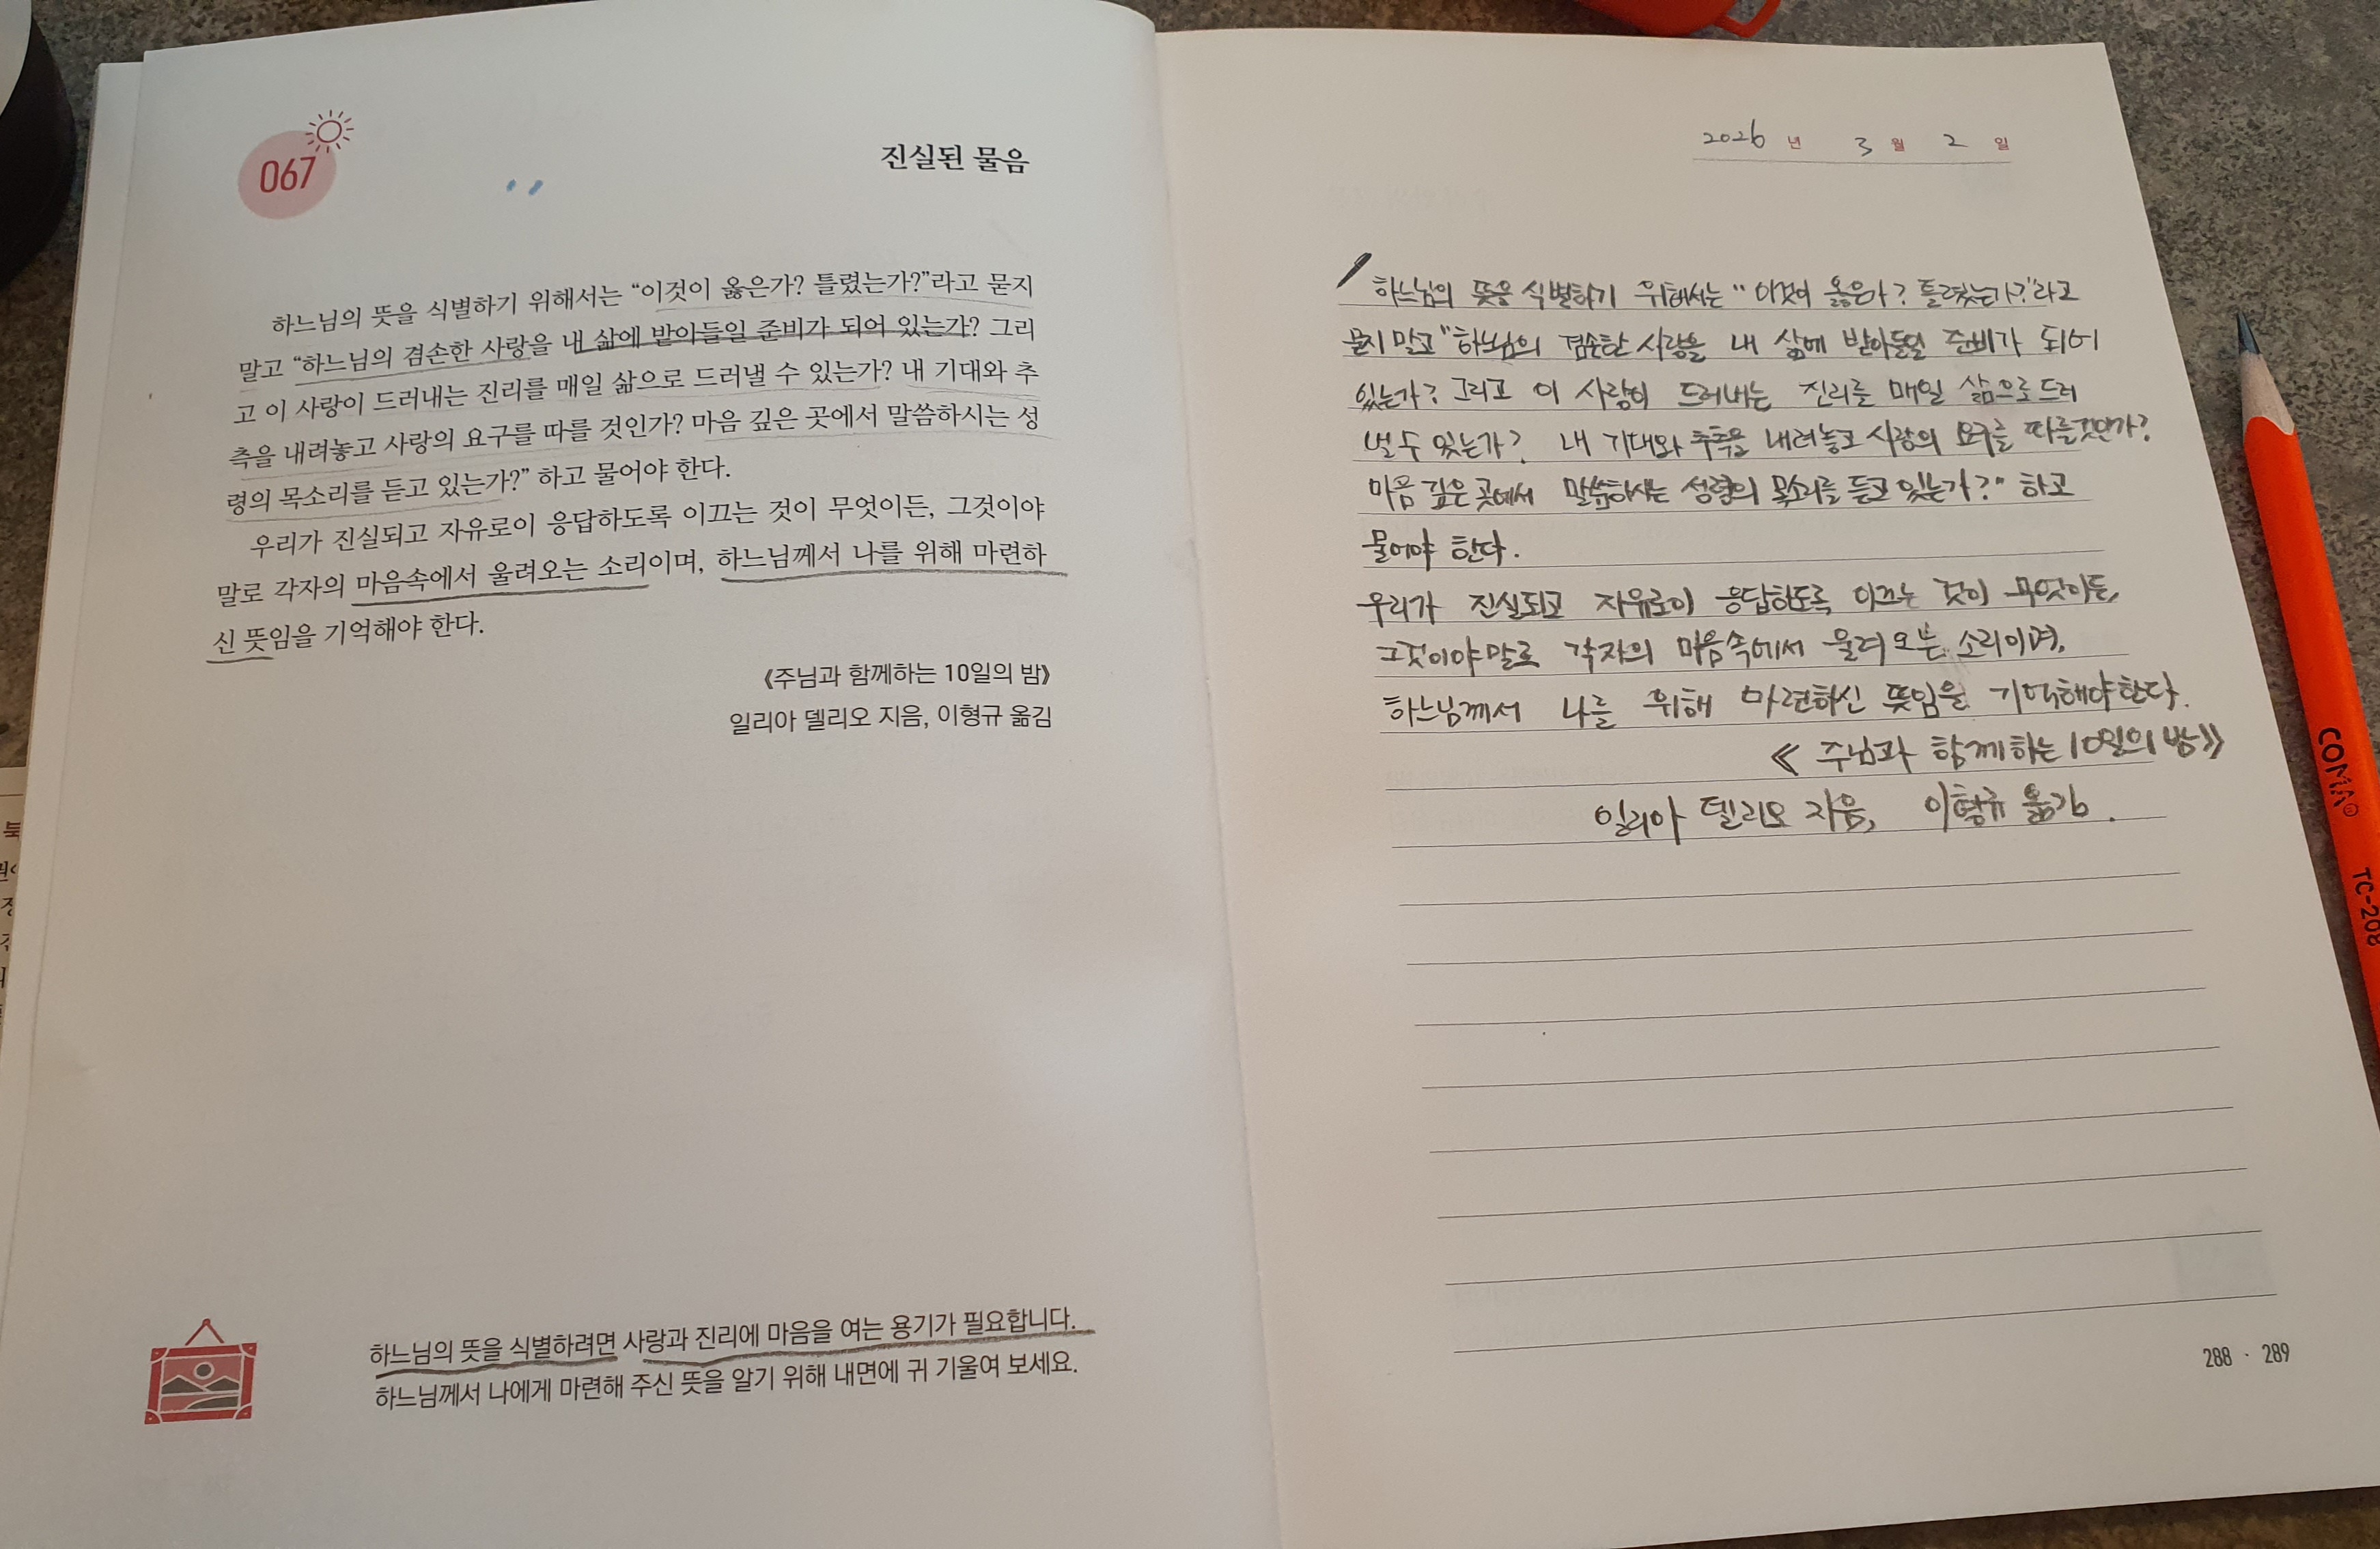 067
진실된 물음
하느님의 뜻을 식별하기 위해서는 “이것이 옳은가? 틀렸는가?”라고 묻지
말고 “하느님의 겸손한 사랑을 내 삶에 받아들일 준비가 되어 있는가? 그리
고 이 사랑이 드러내는 진리를 매일 삶으로 드러낼 수 있는가? 내 기대와 추
측을 내려놓고 사랑의 요구를 따를 것인가? 마음 깊은 곳에서 말씀하시는 성
령의 목소리를 듣고 있는가?” 하고 물어야 한다.
우리가 진실되고 자유로이 응답하도록 이끄는 것이 무엇이든, 그것이야
말로 각자의 마음속에서 울려오는 소리이며, 하느님께서 나를 위해 마련하
신 뜻임을 기억해야 한다.
《주님과 함께하는 10일의 밤》
일리아 델리오 지음, 이형규 옮김
하느님의 뜻을 식별하려면 사랑과 진리에 마음을 여는 용기가 필요합니다.
하느님께서 나에게 마련해 주신 뜻을 알기 위해 내면에 귀 기울여 보세요.
2026 년 3 월 2 일
하느님의 뜻을 식별하기 위해서는 "이것이 옳은가? 틀렸는가?"라고
묻지 말고 "하느님의 겸손한 사랑을 내 삶에 받아들일 준비가 되어
있는가? 그리고 이 사랑이 드러내는 진리를 매일 삶으로 드러
낼 수 있는가? 내 기대와 추측을 내려놓고 사랑의 요구를 따를것인가?
마음 깊은 곳에서 말씀하시는 성령의 목소리를 듣고 있는가?" 하고
물어야 한다.
우리가 진실되고 자유로이 응답하도록 이끄는 것이 무엇이든,
그것이야말로 각자의 마음속에서 울려오는 소리이며,
하느님께서 나를 위해 마련하신 뜻임을 기억해야한다.
《주님과 함께하는 10일의 밤》
일리아 델리오 지음, 이형규 옮김.
288 · 289
COMA
TC-208